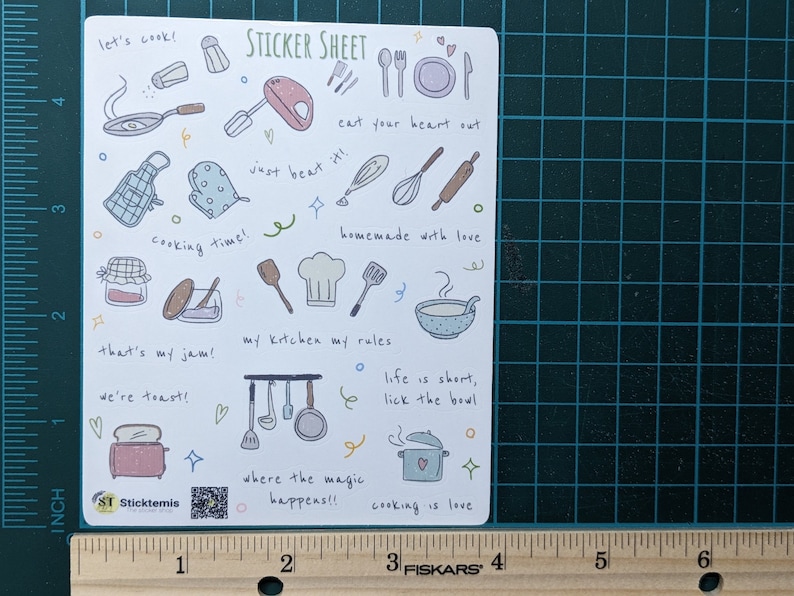 let's cook!
STICKER SHEET
eat your heart out
just beat it!
cooking time!
homemade with love
that's my jam!
my kitchen my rules
we're toast!
life is short,
lick the bowl
where the magic
happens!!
cooking is love
ST
Sticktemis
The sticker shop
4
3
2
1
INCH
1
2
3
FISKARS®
4
5
6